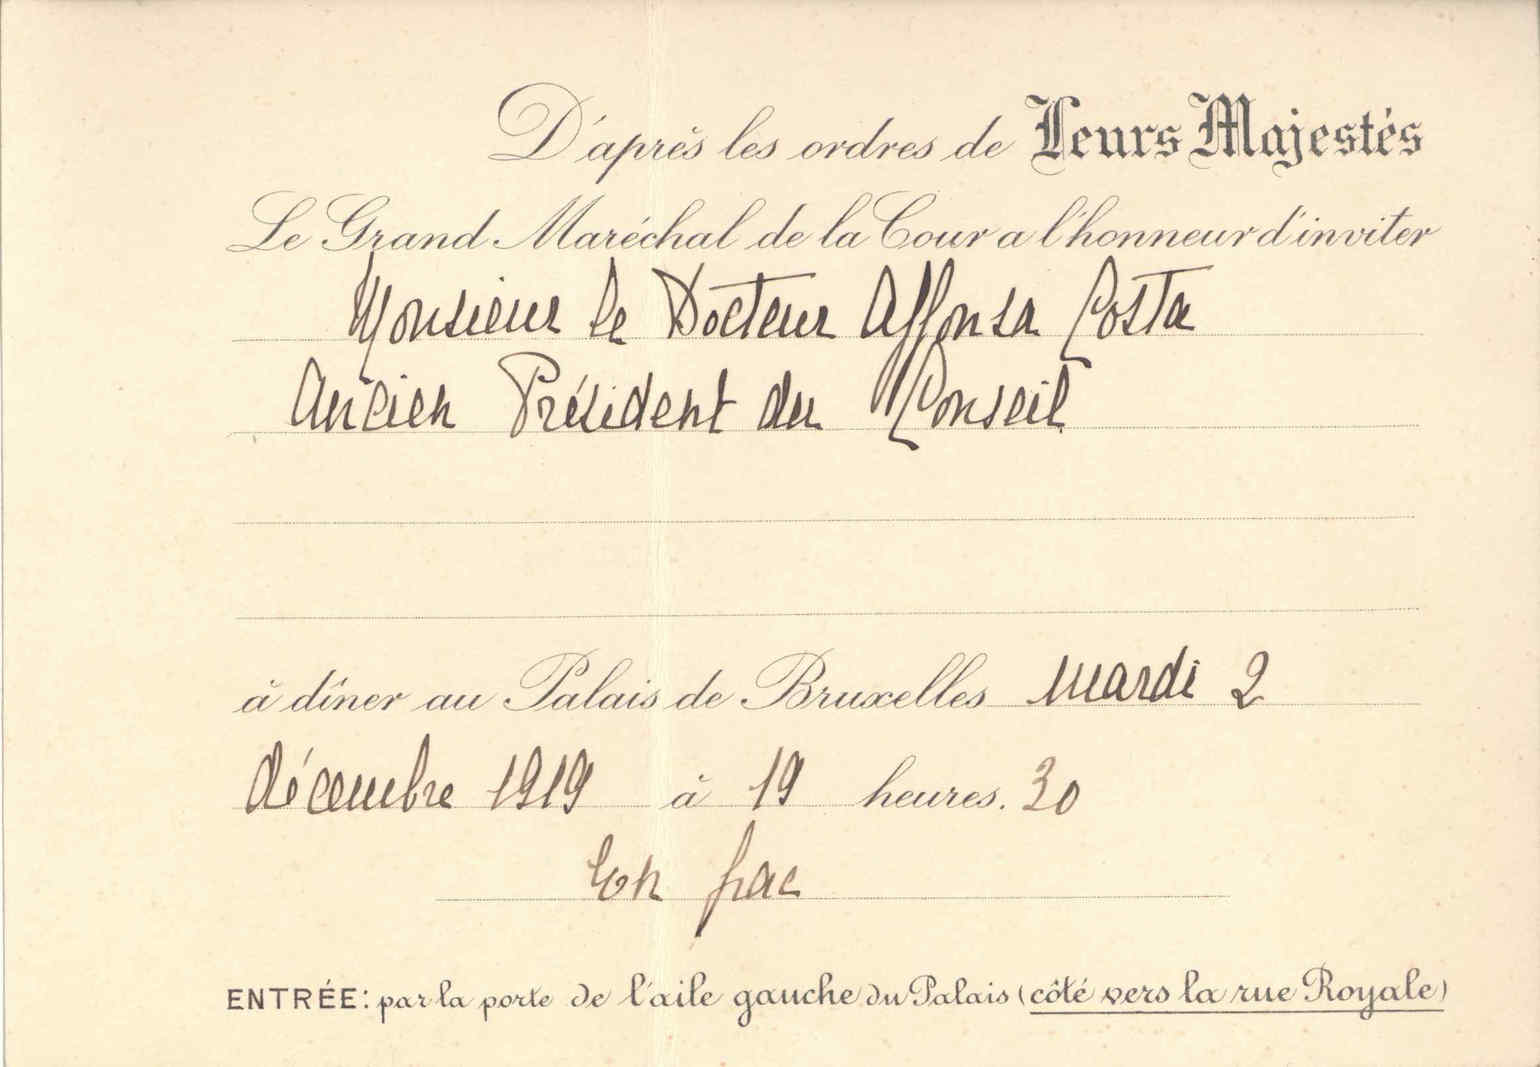 D'après les ordres de Leurs Majestés
Le Grand Maréchal de la Cour a l'honneur d'inviter
Monsieur le Docteur Affonsa Costa
Ancien Président du Conseil
à dîner au Palais de Bruxelles mardi 2
décembre 1919 à 19 heures. 30
En frac
ENTRÉE: par la porte de l'aile gauche du Palais (côté vers la rue Royale)